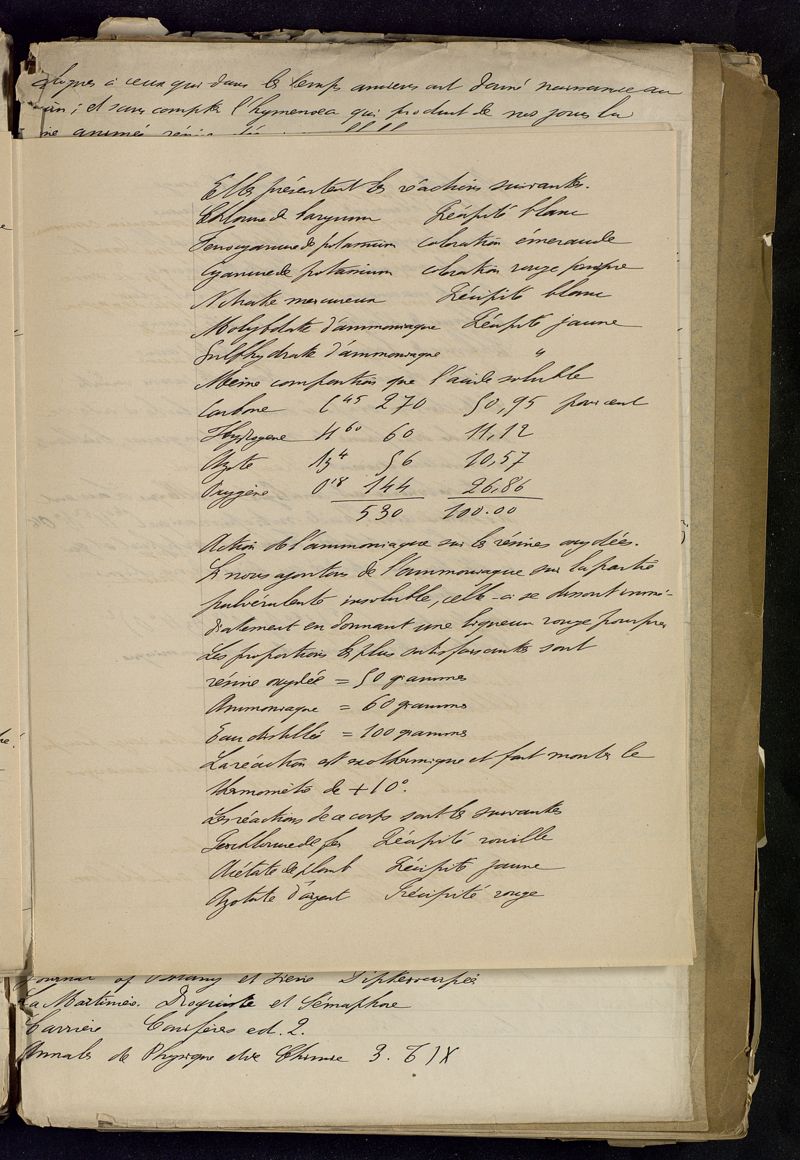 à ceux qui dans les temps anciens ont donné naissance au
; et sans compter l'hymenoea qui produit de nos jours la
animée
Elles présentent les réactions suivantes.
Chlorure de baryum Précipité blanc
Ferrocyanure de potassium coloration émeraude
Cyanure de potassium coloration rouge pourpre
Nitrate mercureux Précipité blanc
Molybdate d'ammoniaque Précipité jaune
Sulfhydrate d'ammoniaque "
Meme composition que l'acide soluble
Carbone C45 270 50,95 pour cent
Hydrogene H60 60 11,12
Azote Az4 56 10,57
Oxygène O18 144 26,86
530 100.00
Action de l'ammoniaque sur les résines oxydées.
Si nous ajoutons de l'ammoniaque sur la partie
pulvérulente insoluble, celle-ci se dissout immé-
diatement en donnant une liqueur rouge pourpre
Les proportions les plus satisfaisantes sont
résine oxydée = 50 grammes
Ammoniaque = 60 grammes
Eau distillée = 100 grammes
La réaction est exothermique et fait monter le
thermomètre de +10°.
Les réactions de ce corps sont les suivantes
Perchlorure de fer Précipité rouille
Acétate de plomb Précipité jaune
Azotate d'argent Précipité rouge
Journal of Botany et Dipterocarpées
La Martinière. Droguiste et Sémaphore
Carrière Conifères ed. 2.
Annales de Physique et de Chimie 3. T IX